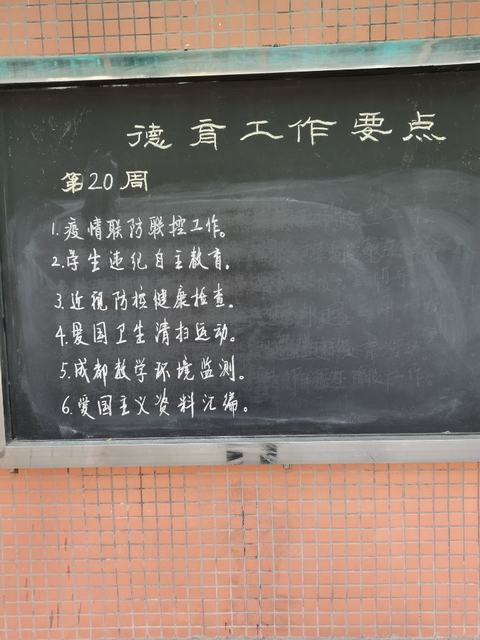 德育工作要点
第20周
1.疫情联防联控工作。
2.学生违纪自主教育。
3.近视防控健康检查。
4.爱国卫生清扫运动。
5.成都教学环境监测。
6.爱国主义资料汇编。